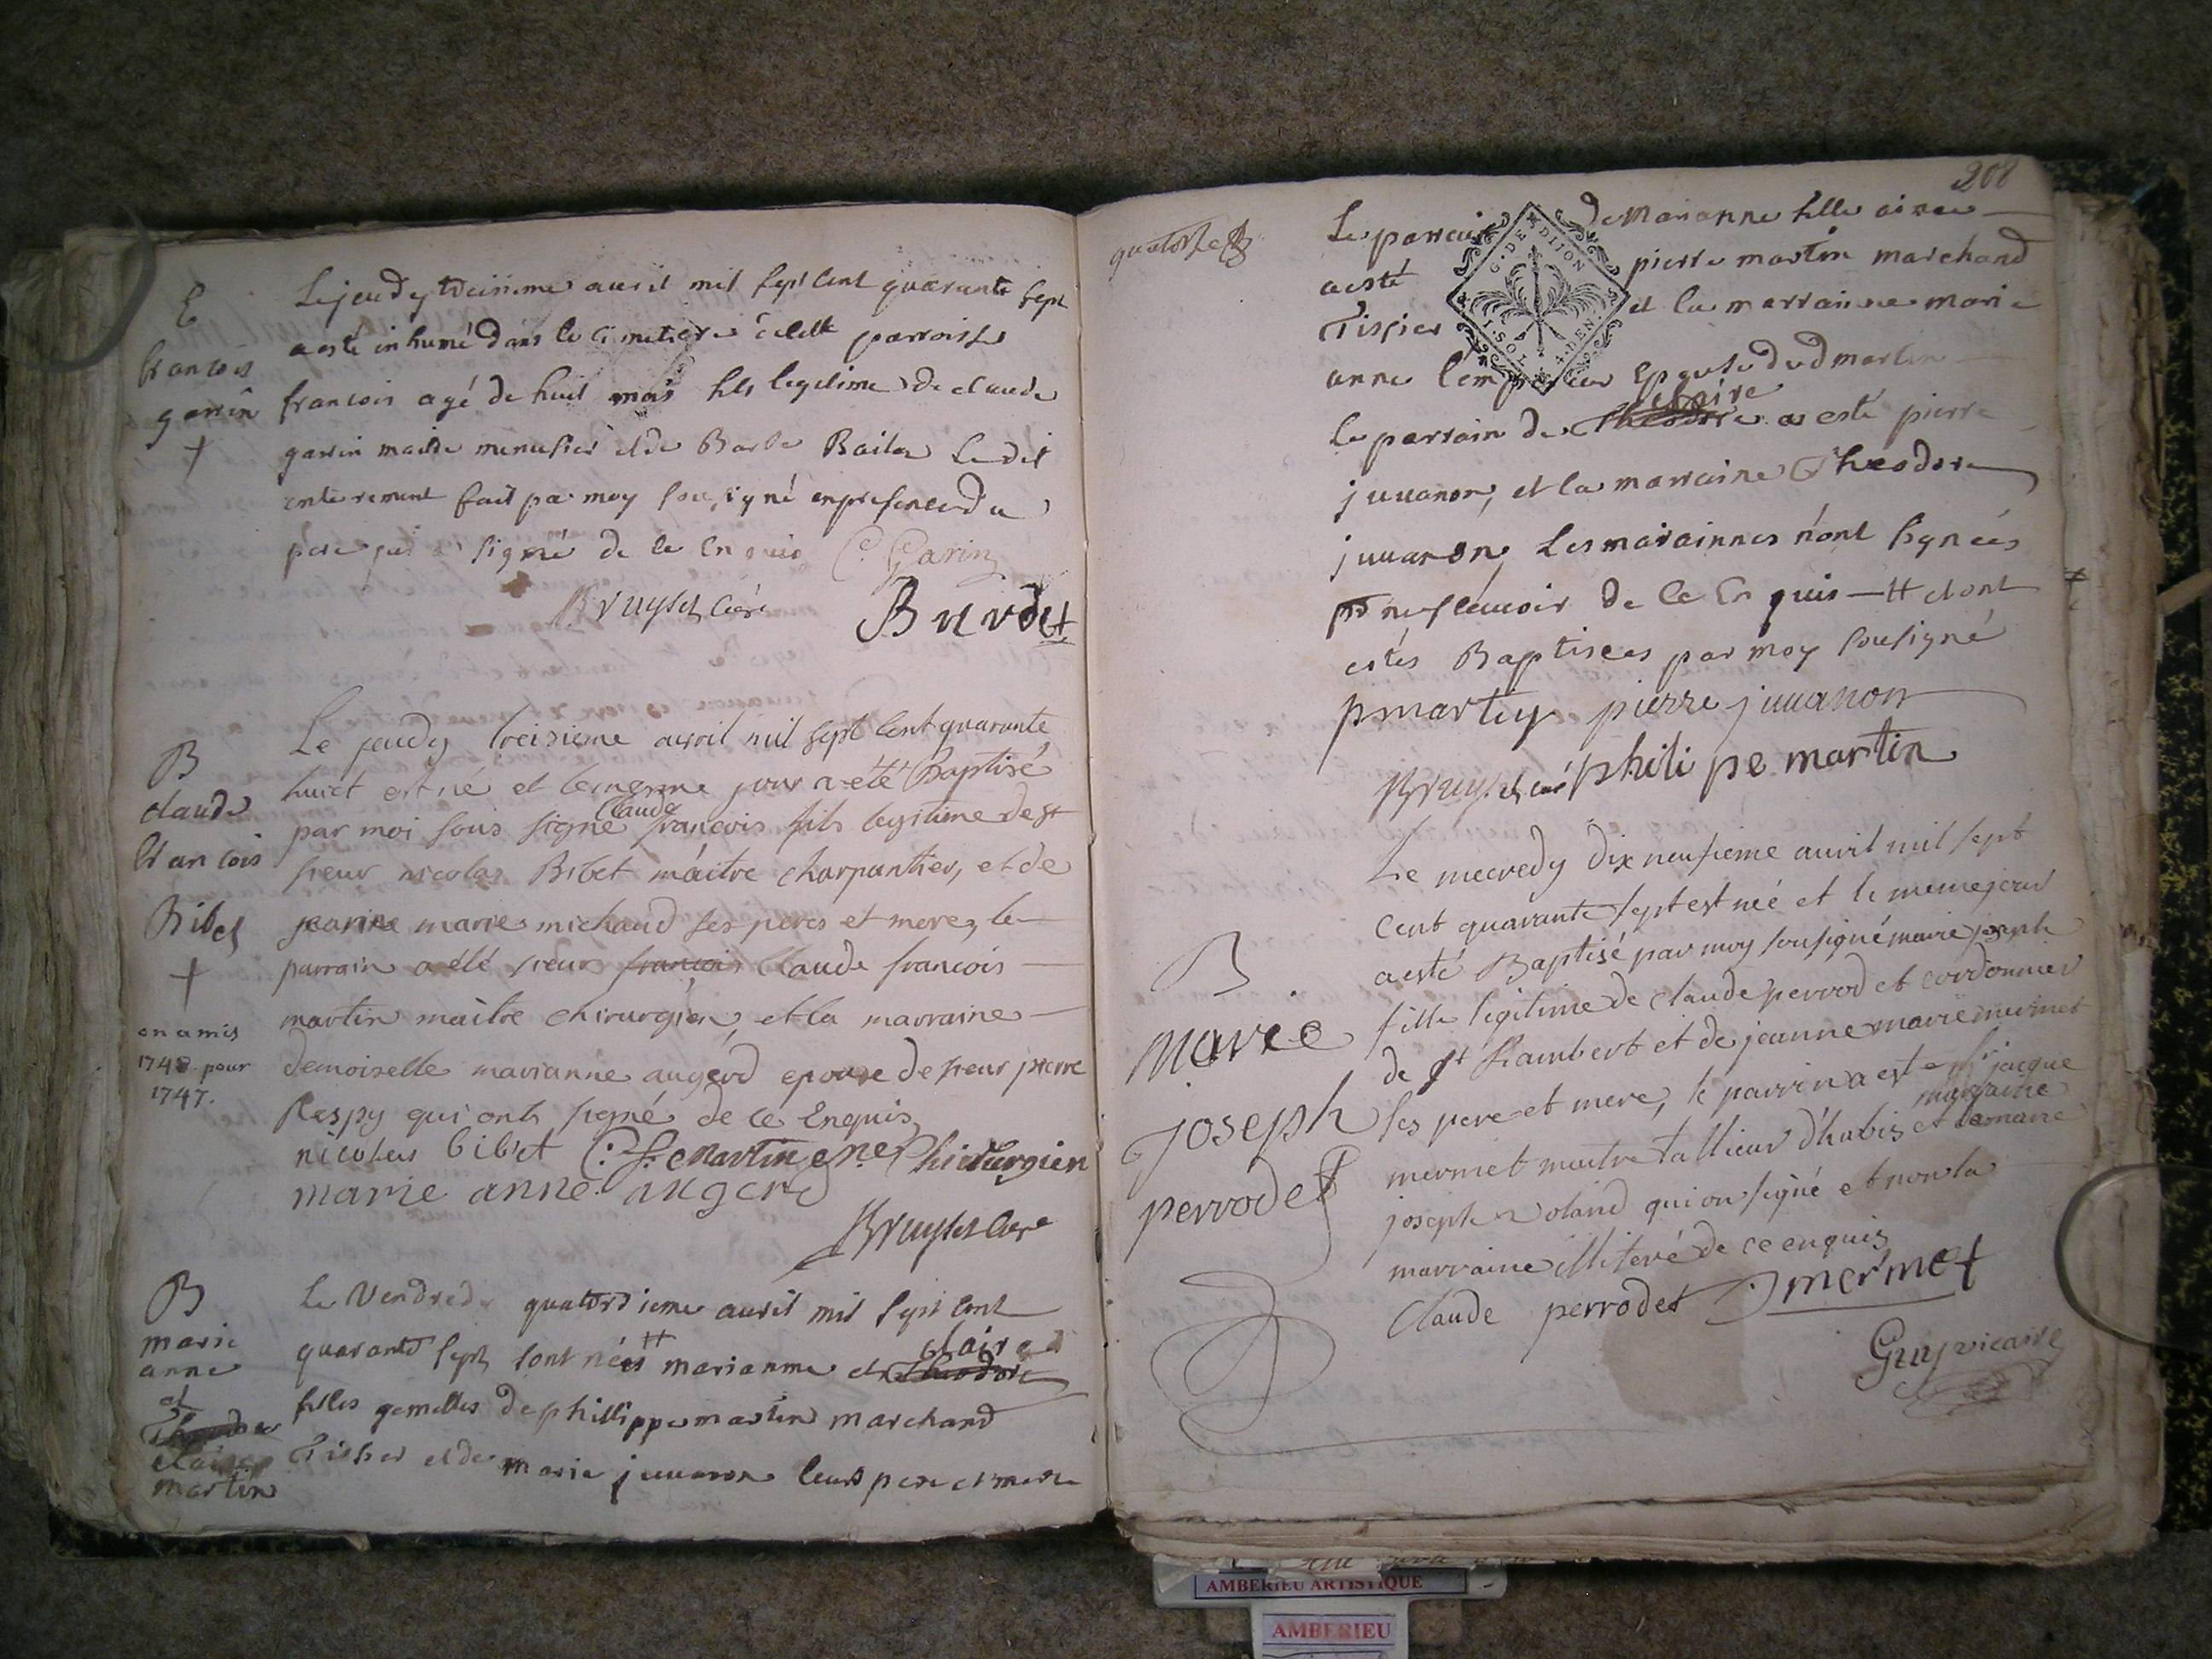 E
francois
garin
Le jeudy treisieme avril mil sept cent quarante sept
a esté inhumé dans le cimetiere de cette parroisse
francois agé de huit mois fils legitime de claude
garin maitre menusier et de Barbe Ledit
enterement fait par moy sousigné en presence du
pere qui a signé de ce Enquis C. Garin
Bruyset Curé Burdet
B
claude
francois
Bibet
on a mis
1748 pour
1747.
Le jeudy treisieme avril mil sept cent quarante
huict est né et le meme jour a été Baptisé
par moi sous signé claude francois fils legitime de
sieur nicolas Bibet maitre charpantier, et de
jeanne marie michaud ses peres et mere, le
parrain a été sieur francois Claude francois
martin maitre chirurgien, et la marraine
demoiselle marianne augerd epouse de sieur pierre
Respy qui ont signé de ce Enquis
nicolas bibet C: f: Martin Chirurgien
marie anne augerd
Bruyset Curé
B
marie
anne
et
Theodore
Claire
martin
Le Vendredy quatorsieme avril mil sept cent
quarante sept sont nées # marianne et Theodore claire
filles gemelles de phillippe martin marchand
Tissier et de marie juvanon leurs pere et mere
208
quatorze
Le parrain de Marianne fille ainee
a esté pierre martin marchand
Tissier et la marrainne marie
anne Lempereur Epouse dud martin
G. DE DIJON
1. SOL. 4. DEN.
Le parrain de Theodore claire a esté pierre
juvanon, et la marraine Theodore
juvanon Les marainnes n'ont signées
pr ne scavoir de ce Enquis — # et ont
estés Baptisees par moy sousigné
p martin pierre juvanon
Bruyset curé philipe martin
B
Marie
joseph
perrodet
Le mecredy dix neufieme avril mil sept
cent quarante sept est née et le meme jour
a esté Baptisé par moy sousigné marie joseph
fille legitime de claude perrod et cordonnier
de st Rambert et de jeanne marie mermet
ses pere et mere, le parrin a esté sr jacque
mermet maitre tallieur d'habis et la marie marraine
joseph Roland qui on signé et non la
marraine illiteré de ce enquis
Claude perrodet J mermet
Guy vicaire
AMBERIEU ARTISTIQUE
AMBERIEU